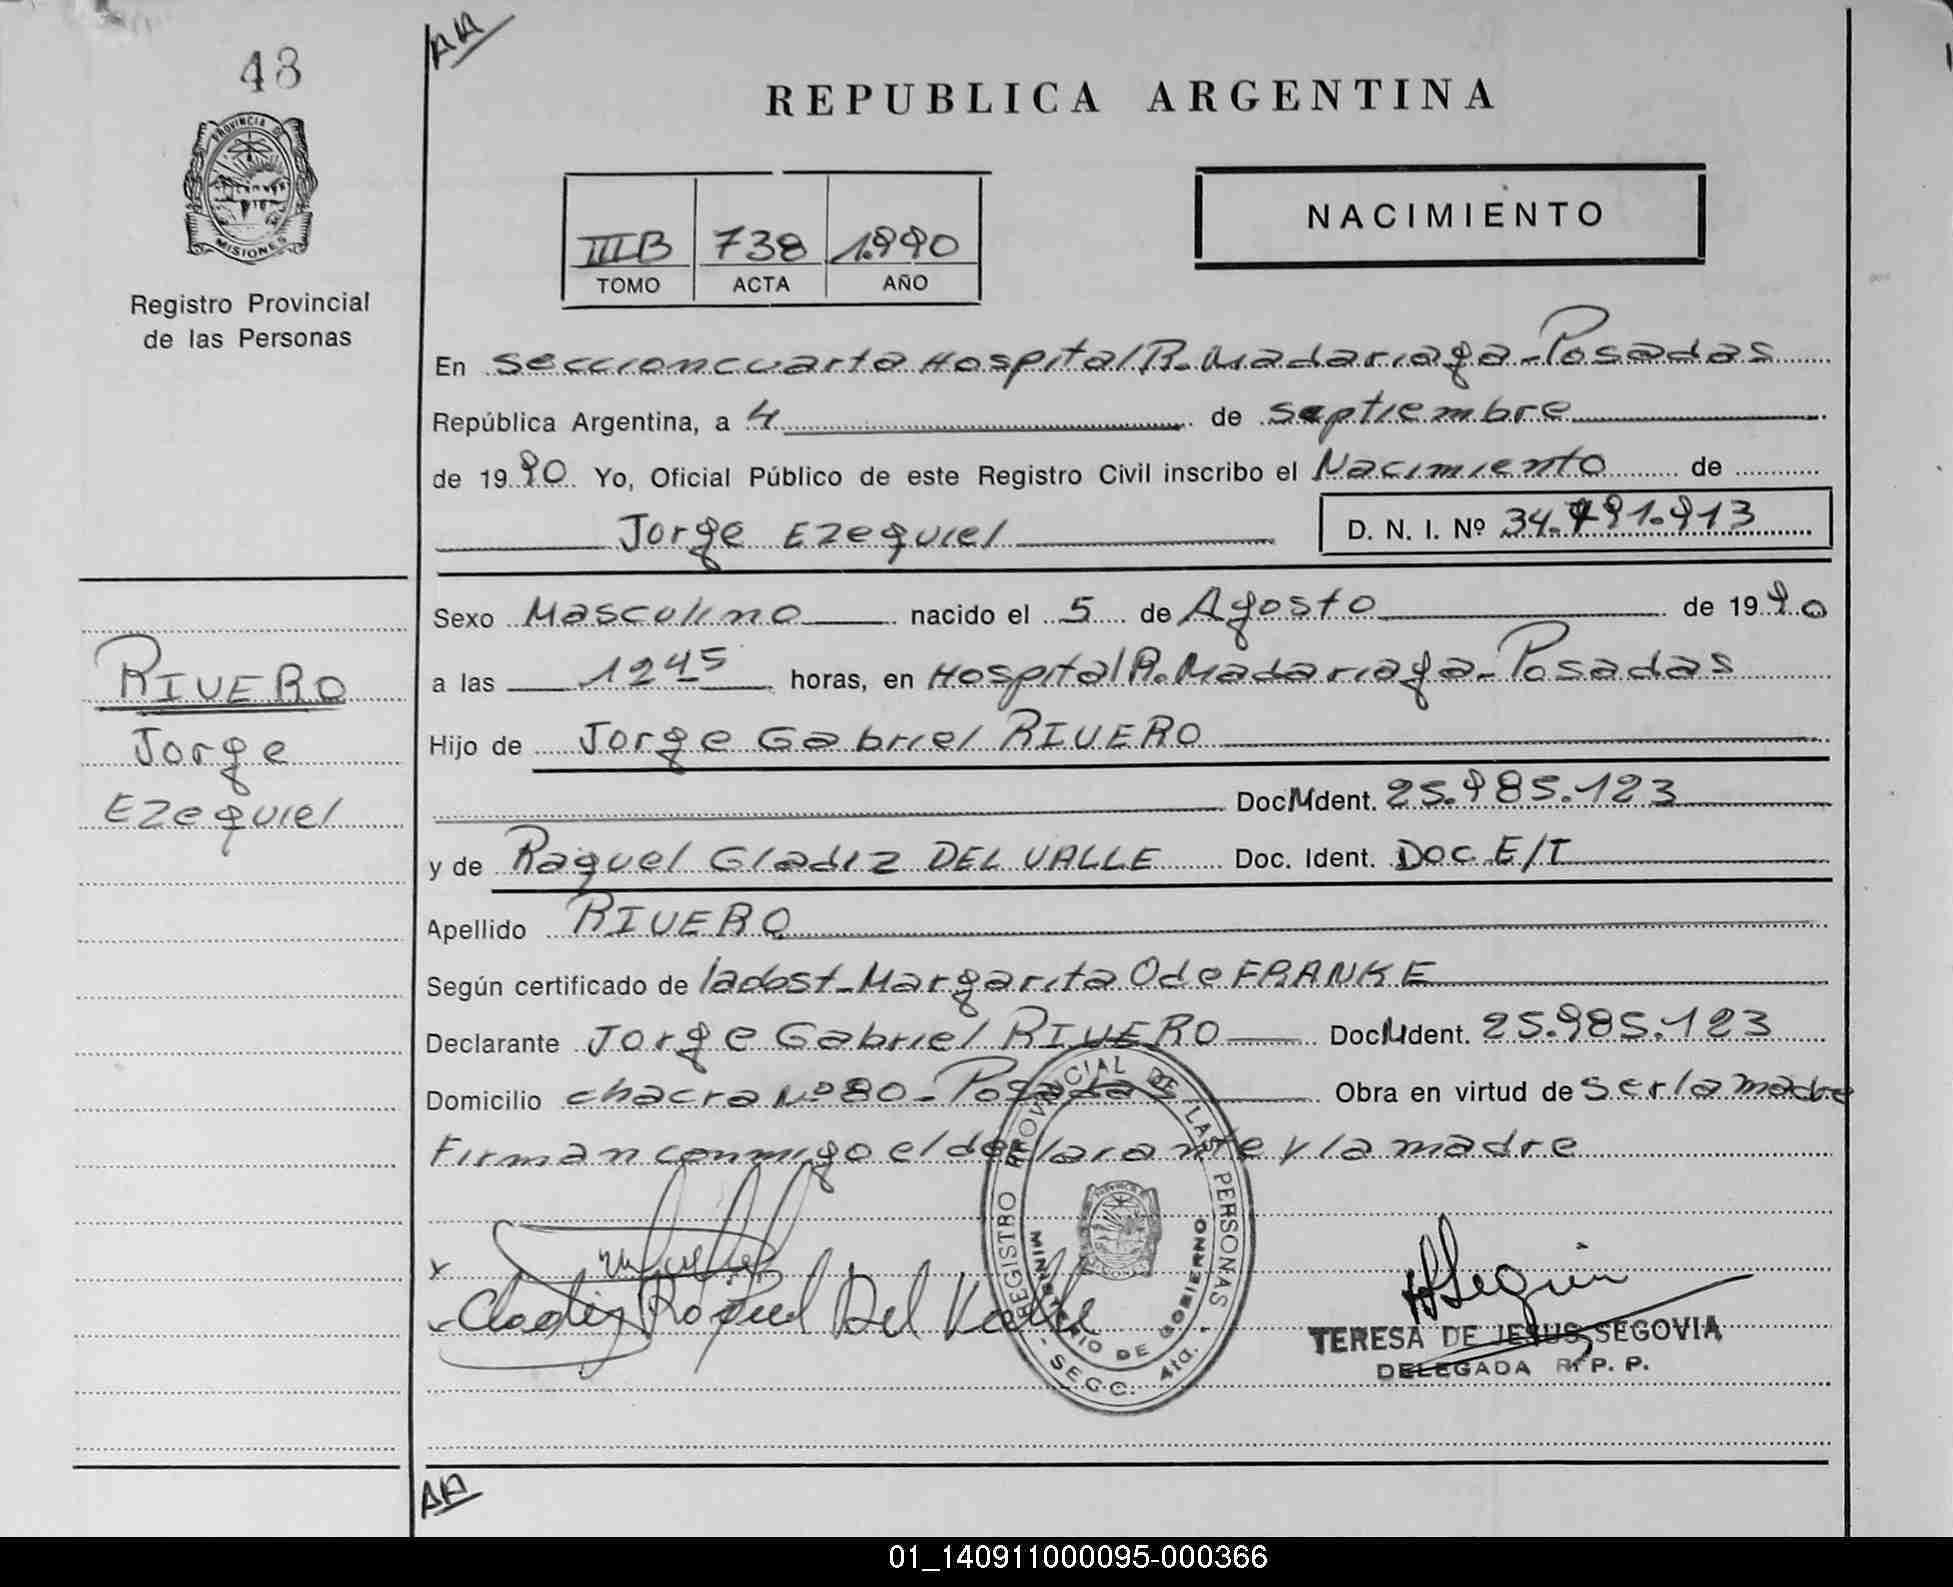 48
AA
REPUBLICA ARGENTINA
PROVINCIA DE
MISIONES
Registro Provincial
de las Personas
IIIB 738 1.990
TOMO ACTA AÑO
NACIMIENTO
En seccion cuarta Hospital R. Madariaga - Posadas
República Argentina, a 4 de septiembre
de 1990 Yo, Oficial Público de este Registro Civil inscribo el Nacimiento de
Jorge Ezequiel D. N. I. Nº 34.791.913
Sexo Masculino nacido el 5 de Agosto de 1990
a las 1245 horas, en Hospital R. Madariaga - Posadas
RIVERO
Jorge
Ezequiel
Hijo de Jorge Gabriel RIVERO
Doc. Ident. 25.985.123
y de Raquel Gladiz DEL VALLE Doc. Ident. DOC E/T
Apellido RIVERO
Según certificado de la obst - Margarita O de FRANKE
Declarante Jorge Gabriel RIVERO Doc. Ident. 25.985.123
Domicilio chacra Nº 80 - Posadas Obra en virtud de ser la madre
Firman conmigo el declarante y la madre
x
Gladiz Raquel Del Valle
REGISTRO PROVINCIAL DE LAS PERSONAS
MINISTERIO DE GOBIERNO
- SECC. 4ta. -
TERESA DE JESUS SEGOVIA
DELEGADA R. P. P.
AA
01_140911000095-000366